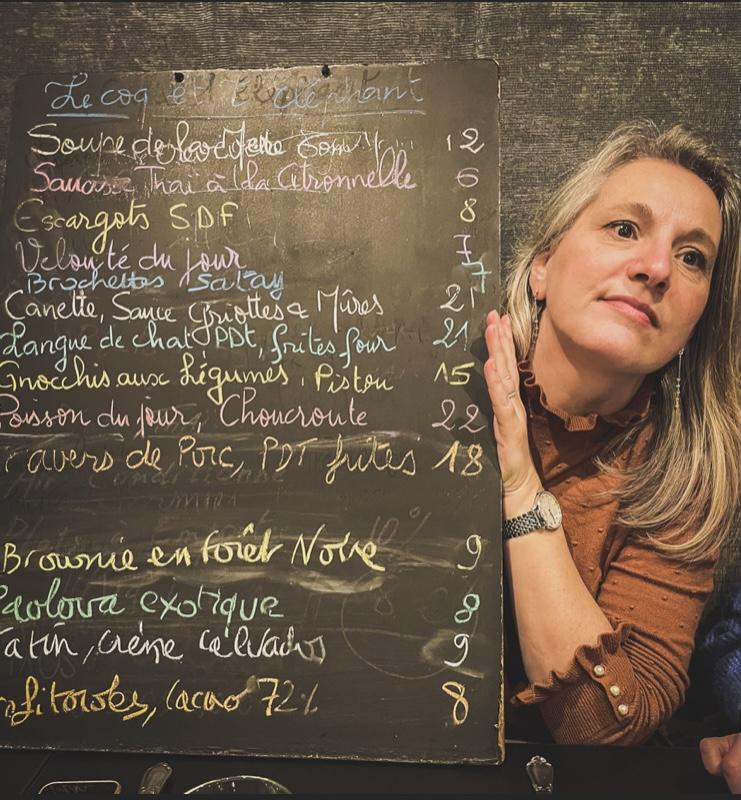 Le coq et l'éléphant
Soupe de 12
Saucisse Thai à la Citronnelle 6
Escargots SDF 8
Velouté du jour 7
Brochettes Satay 7
Canette, Sauce Griottes & Mûres 21
Langue de chat PDt, frites four 21
Gnocchis aux Légumes, Pistou 15
Poisson du jour, Choucroute 22
ravers de Porc, PDT frites 18
Brownie en forêt Noire 9
Pavlova exotique 8
Tatin, crème calvados 9
ofiteroles, Cacao 72% 8